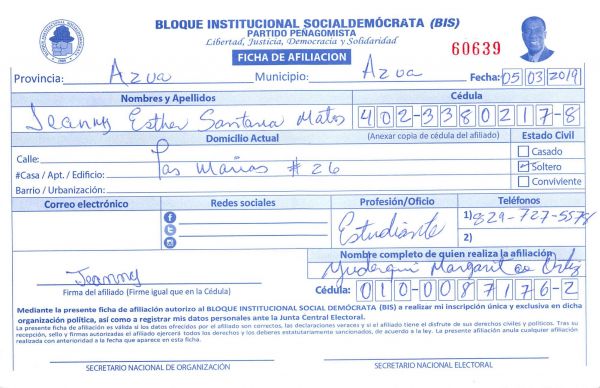 BLOQUE INSTITUCIONAL SOCIALDEMÓCRATA (BIS)
PARTIDO PEÑAGOMISTA
Libertad, Justicia, Democracia y Solidaridad
FICHA DE AFILIACION
60639
Provincia: Azua Municipio: Azua Fecha: 05 03 2019
Nombres y Apellidos Cédula
Jeanny Esther Santana Matos 402-3380217-8
Domicilio Actual (Anexar copia de cédula del afiliado) Estado Civil
Calle: Las Marias # 26 Casado
#Casa / Apt. / Edificio: Soltero
Barrio / Urbanización: Conviviente
Correo electrónico Redes sociales Profesión/Oficio Teléfonos
Estudiante 1) 829-727-5578
2)
Nombre completo de quien realiza la afiliación
Margarita Ortiz
Jeanny
Firma del afiliado (Firme igual que en la Cédula) Cédula: 010-0087176-2
Mediante la presente ficha de afiliación autorizo al BLOQUE INSTITUCIONAL SOCIAL DEMÓCRATA (BIS) a realizar mi inscripción única y exclusiva en dicha
organización política, así como a registrar mis datos personales ante la Junta Central Electoral.
La presente ficha de afiliación es válida si los datos ofrecidos por el afiliado son correctos, las declaraciones veraces y si el afiliado tiene el disfrute de sus derechos civiles y políticos. Tras su
recepción, sello y firmas autorizadas el afiliado ejercerá todos los derechos y los deberes estatutariamente sancionados, de acuerdo a la ley. La presente afiliación anula cualquier afiliación
realizada con anterioridad a la fecha que aparece en esta ficha.
SECRETARIO NACIONAL DE ORGANIZACIÓN SECRETARIO NACIONAL ELECTORAL